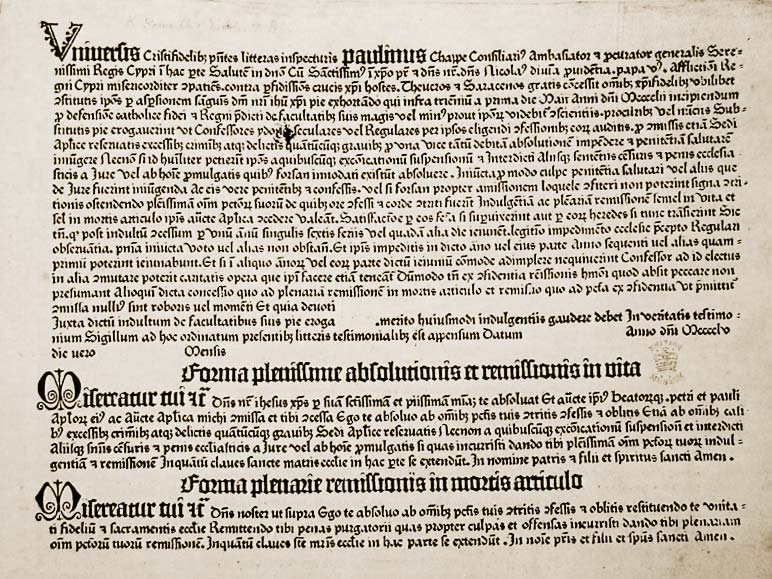 Vniversis Cristifidelibꝫ p̄ntes litteras inspecturis Paulinus Chappe Consiliariꝰ Ambasiator ⁊ ꝓcurator generalis Sere-
nissimi Regis Cypri ī hac ꝑte Salutē in dn̄o Cū Sāctissimꝰ ī xp̄o pr̄ ⁊ dn̄s nr̄. dn̄s Nicolaꝰ diuīa ꝓuidētia. papa vꝰ. Afflictiōi Re-
gni Cypri misericorditer ꝯpatiēs. contra ꝑfidissimos crucis xp̄i hostes. Theucros ⁊ Saracenos gratis cōcessit oībꝫ xp̄ifidelibꝫ vbilibet
ꝯstitutis ip̄os ꝑ aspersionem sanguīs dn̄i nr̄i ih̄u xp̄i pie exhortādo qui infra trienniū a prima die Maii Anni dn̄i Mcccclii incipiendum
ꝓ defensiōe catholice fidei ⁊ Regni p̄dicti de facultatibꝫ suis magis vel minꝰ prout ip̄oꝝ videbit̄ ꝯscientiis. ꝓcuratoribꝫ vel nūciis Sub-
stitutis pie erogauerint vt Confessores ydonei seculares vel Regulares per ipsos eligendi ꝯfessionibꝫ eoꝝ auditis. ꝓ ꝯmissis etiā Sedi
Aplice reseruatis excessibꝫ crimībꝫ atqꝫ delictis quātūcūqꝫ grauibꝫ ꝓ vna vice tātū debitā absolutionē impēdere ⁊ penitētiā salutarē
iniūgere Necnon si id hūiliter petierīt ip̄os a quibuscūqꝫ excōicationū suspensionū ⁊ Interdicti Aliisqꝫ sentētiis cēsuris ⁊ penis ecclesia-
sticis a Jure vel ab hoīe ꝓmulgatis quibꝰ forsan innodati existūt absoluere. Iniūcta ꝓ modo culpe penitētia salutari vel aliis que
de Jure fuerint iniūgenda Ac eis vere penitētibꝫ ⁊ confessis. vel si forsan propter amissionem loquele ꝯfiteri non poterint signa ꝯtri-
tionis ostendendo plenissimā oīm petōꝝ suoꝝ de quibꝫ ore ꝯfessi ⁊ corde ꝯtriti fuerīt Indulgētiā ac plenariā remissionē semel in vita et
sel in mortis articulo ip̄is aūcte Aplica ꝯcedere valeāt. Satisfactōe ꝑ eos fc̄ā si suꝑuixerīt aut ꝑ eoꝝ heredes si tūc trāsierīt Sic
tn̄. qꝫ post indultū ꝯcessum ꝑ vnū ānū singulis sextis feriis vel quadā alia die ieiunēt. legittīo impedimēto ecclesie p̄cepto Regulari
obseruātia. pn̄ia iniūcta voto vel alias non obstāte. Et ip̄is impeditis in dicto āno vel eius parte Anno sequenti vel alias quam-
primū poterint ieiunabunt. Et si ī aliquo ānoꝝ vel eoꝝ parte dictū ieiuniū cōmode adimplere nequiuerint Confessor ad id electus
in alia ꝯmutare poterit caritatis opera que ip̄i facere etiā teneāt̄ Dūmodo tn̄ ex ꝯfidentia rēissionis hmōi quod absit peccare non
presumant Alioqui dicta concessio quo ad plenariā remissionē in mortis articulo et remissio quo ad pctā ex ꝯfidentia vt p̄mittit̄
ꝯmissa nulliꝰ sint roboris vel momēti Et quia deuoti
Iuxta dictū indultum de facultatibus suis pie eroga .merito huiusmodi indulgentiis gaudere debet In veritatis testimo-
nium Sigillum ad hoc ordinatum presentibꝫ litteris testimonialibꝫ est appensum Datum Anno dn̄i Mccccclv
die vero Mensis
Forma plenissime absolutionis et remissionis in vita
Misereatur tui ⁊c̄ Dn̄s nr̄ ihesus xp̄s ꝑ suā sc̄tissimā et piissimā mīaꝫ te absoluat Et aūcte ip̄iꝰ beatorūqꝫ petri et pauli
Aploꝝ eiꝰ ac Aūcte Aplica michi ꝯmissa et tibi ꝯcessa Ego te absoluo ab oībꝫ pctīs tuis ꝯtritis ꝯfessis ⁊ oblitis Etiā ab oībꝫ casi-
bꝫ excessibꝫ crimībꝫ atqꝫ delictis quātūcūqꝫ grauibꝫ Sedi Aplice reseruatis Necnon a quibuscūqꝫ excōicationū suspensionū et interdicti
Aliisqꝫ sn̄iis cēsuris ⁊ penis eccl̄iasticis a Jure vel ab hoīe ꝓmulgatis si quas incurristi dando tibi plenissimā oīm pctōꝝ tuoꝝ indul-
gentiā ⁊ remissionē Inquātū claues sancte matris eccl̄ie in hac ꝑte se extendūt. In nomine patris ⁊ filii et spiritus sancti Amen.
Forma plenarie remissionis in mortis articulo
Misereatur tui ⁊c̄ Dn̄s noster ut supra Ego te absoluo ab oībꝫ pctīs tuis ꝯtritis ꝯfessis ⁊ oblitis restituendo te vnita-
ti fideliū ⁊ sacramentis eccl̄ie Remittendo tibi penas purgatorii quas propter culpas et offensas incurristi dando tibi plenariam
oīm pctōrū tuorū remissionē. Inquātū claues sc̄te mr̄is eccl̄ie in hac parte se extendūt. In noīe pr̄is et filii et sp̄us sancti Amen.